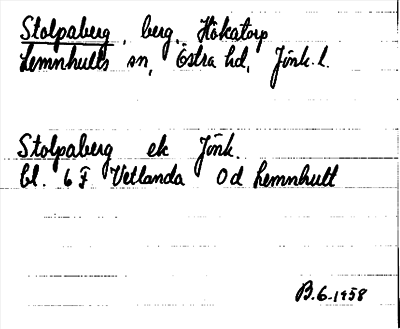 Stolpaberg, berg, Hökatorp
Lemnhults sn, Östra hd, Jönk. l.
Stolpaberg ek Jönk.
bl. 6 F Vetlanda Od Lemnhult
B.6-1958